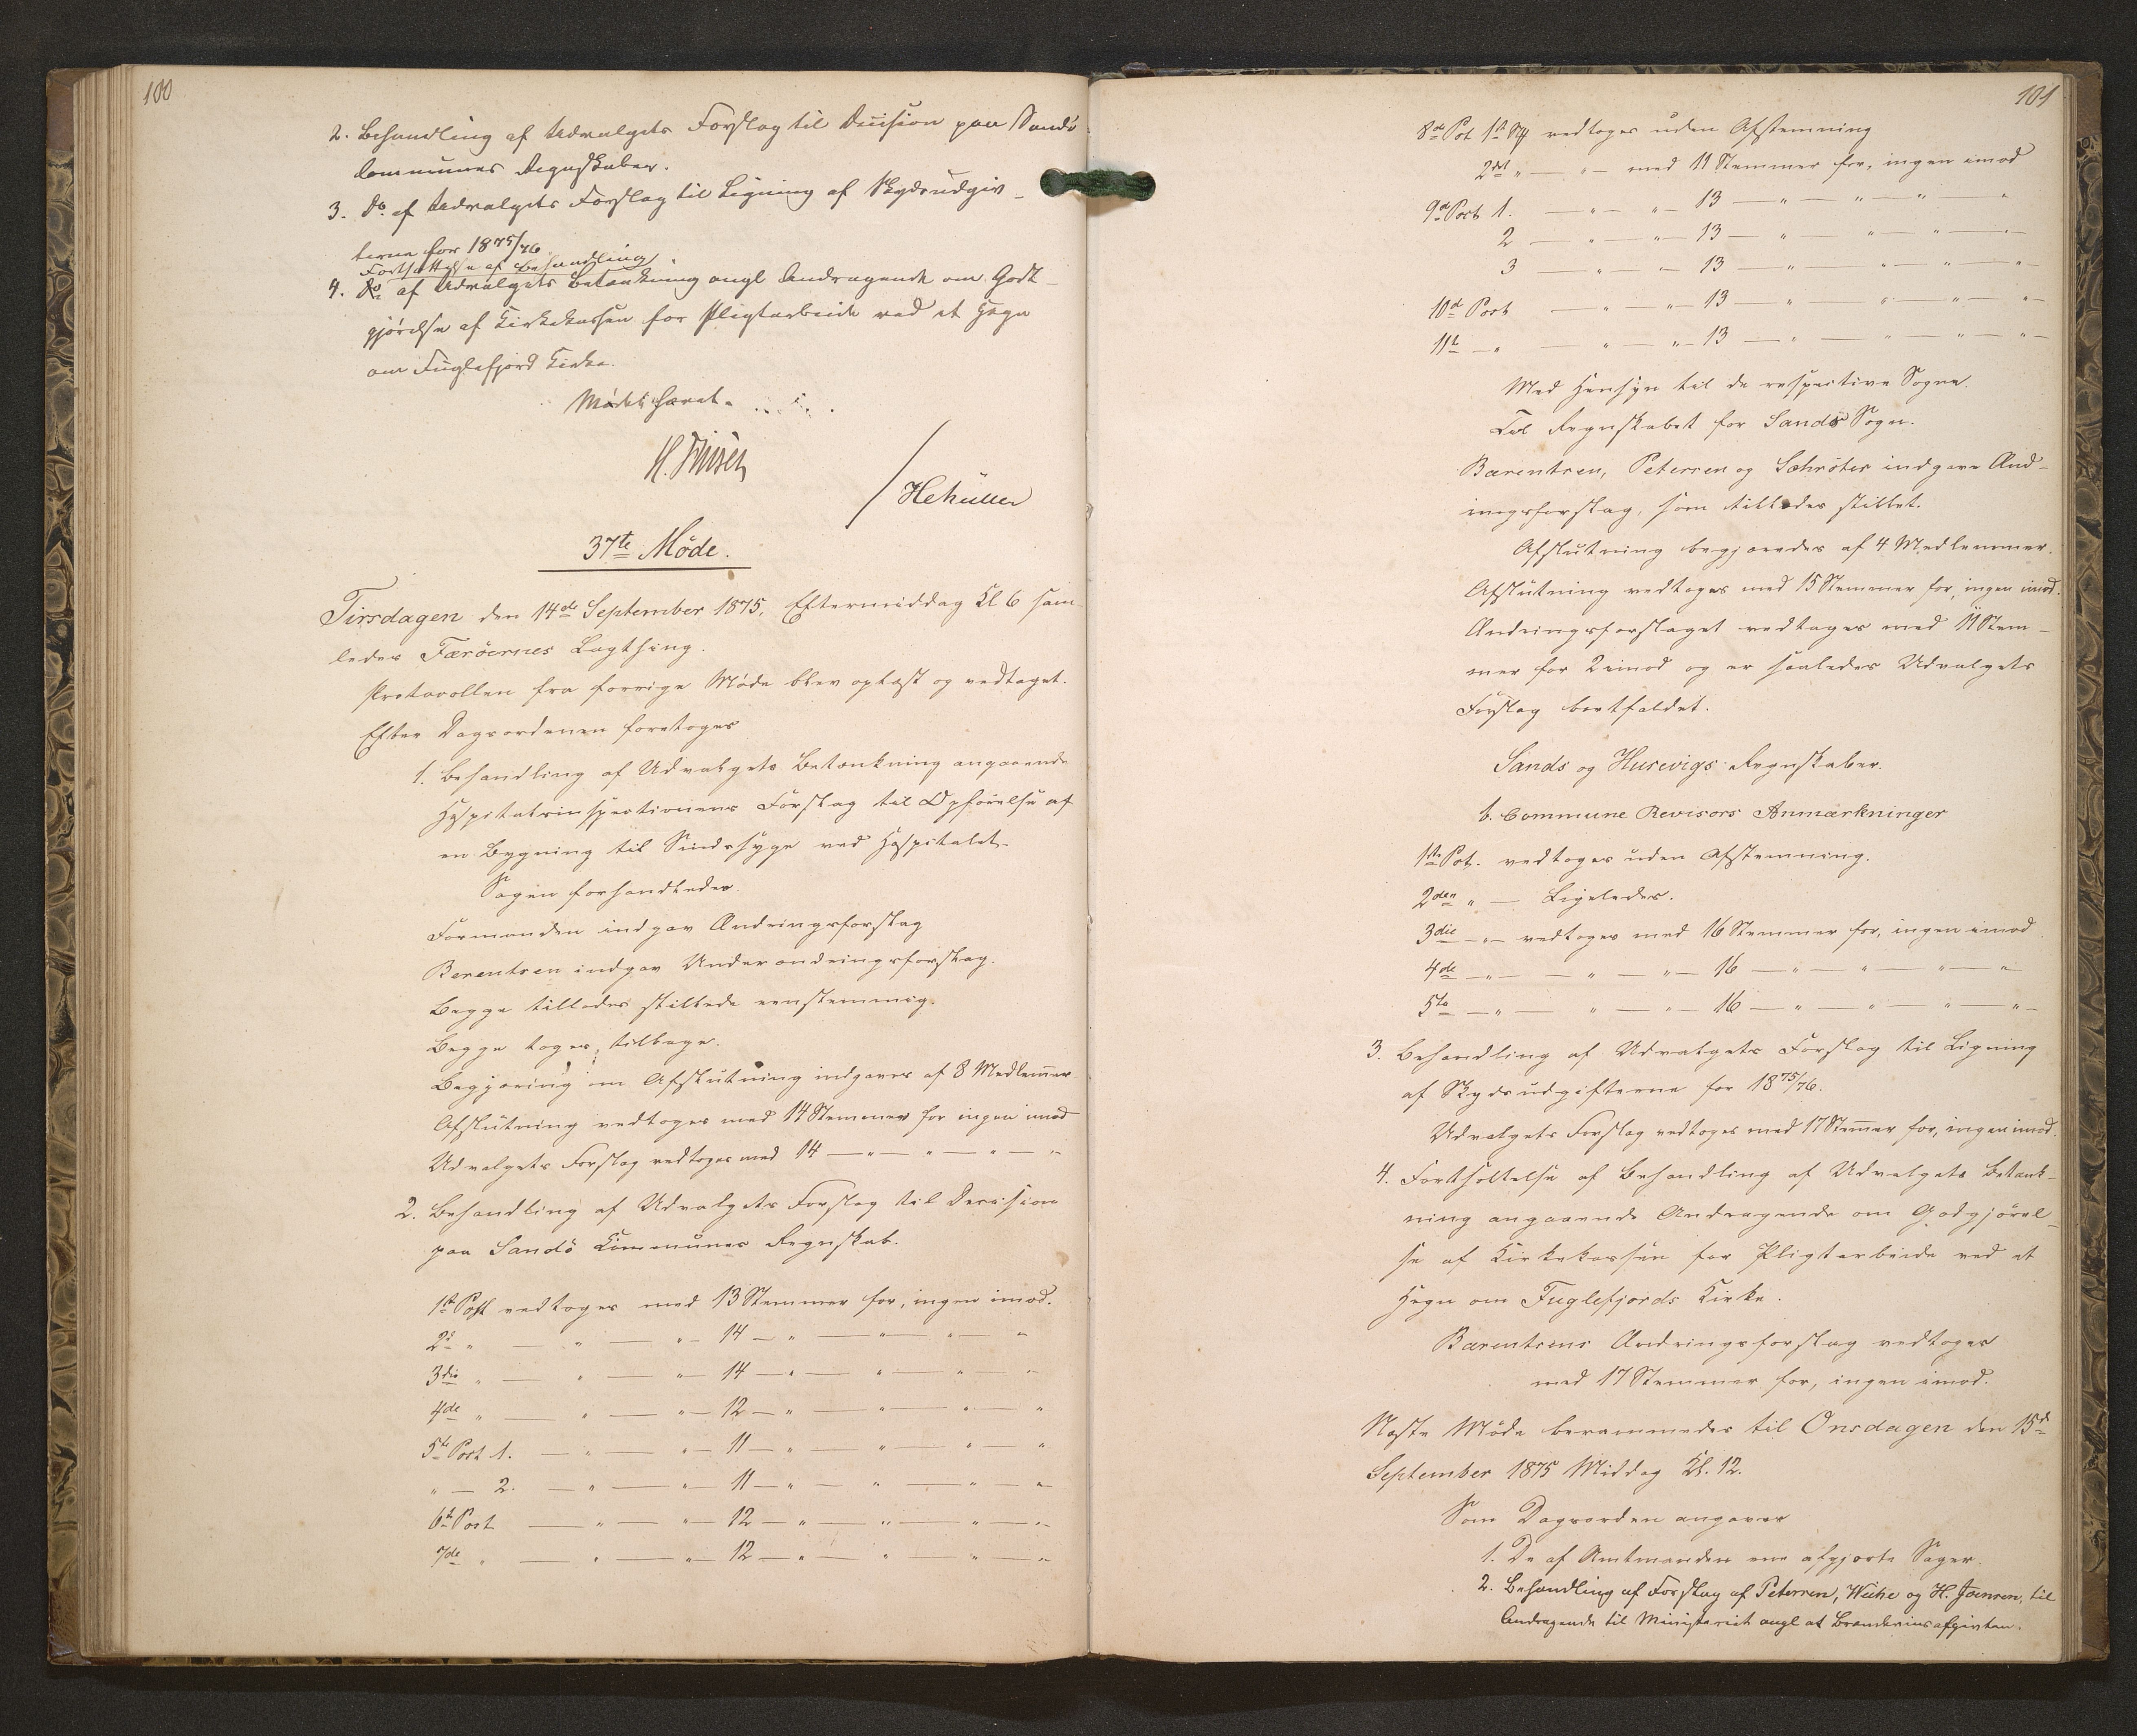 100
2. Behandling af Udvalgets Forslag til Decision paa Sandö
Communes Regnskaber.
3. Do. af Udvalgets Forslag til Ligning af Skydsudgif-
terne for 1875/76.
Fortsættelse af Behandling
4. Do. af Udvalgets Betænkning angl Andragende om Godt-
gjörelse af Kirkekassen for Pligtarbeide ved et Hegn
om Fuglefjord Kirke.
Mödet hævet.
H. Finsen
/HCMüller
37te Möde.
Tirsdagen den 14de September 1875, Eftermiddag Kl 6 sam-
ledes Færöernes Lagthing.
Protocollen fra forrige Möde blev oplæst og vedtaget.
Efter Dagsordenen foretoges
1. Behandling af Udvalgets Betænkning angaaende
Hospitalsinspectionens Forslag til Opförelse af
en Bygning til Sindssyge ved Hospitalet.
Sagen forhandledes.
Formanden indgav Ændringsforslag
Berentsen indgav Underændringsforslag.
Begge tillodes stillede eenstemmig.
Begge toges tilbage.
Begjæring om Afslutning indgaves af 8 Medlemmer
Afslutning vedtoges med 14 Stemmer for ingen imod
Udvalgets Forslag vedtoges med 14 — " — " — " — "
2. Behandling af Udvalgets Forslag til Decision
paa Sandö Kommunes Regnskab.
1ste Post vedtoges med 13 Stemmer for, ingen imod.
2d " — " — " — 14 — " — " — " — "
3die " — " — " — 14 — " — " — " — "
4de " — " — " — 12 — " — " — " — "
5te Post 1. — " — " — 11 — " — " — " — "
" — 2. — " — " — 11 — " — " — " — "
6te Post — " — " — 12 — " — " — " — "
7de " — " — " — 12 — " — " — " — "
101
8de Post 1ste Stk vedtoges uden Afstemning
2det " — " — med 11 Stemmer for, ingen imod
9de Post 1. — " — " — 13 — " — " — " — "
2 — " — " — 13 — " — " — " — "
3 — " — " — 13 — " — " — " — "
10de Post — " — " — 13 — " — " — " — "
11te — " — " — " — 13 — " — " — " — "
Med Hensyn til de respective Sogne.
Til Regnskabet for Sands Sogn.
Barentsen, Petersen og Schröter indgave Ænd-
ingsforslag, som tillodes stillet.
Afslutning begjæredes af 4 Medlemmer.
Afslutning vedtoges med 15 Stemmer for, ingen imod.
Ændringsforslaget vedtages med 11 Stem-
mer for 2 imod og er saaledes Udvalgets
Forslag bortfaldet.
Sands og Husevigs Regnskaber.
b. Commune Revisors Anmærkninger
1ste Pst. vedtoges uden Afstemning.
2den " — Ligeledes.
3die — " — vedtoges med 16 Stemmer for, ingen imod
4de — " — — " — " — 16 — " — " — " — "
5te — " — " — " — 16 — " — " — " — "
3. Behandling af Udvalgets Forslag til Ligning
af Skydsudgifterne for 1875/76.
Udvalgets Forslag vedtoges med 17 Stemer for, ingen imod.
4. Fortsættelse af Behandling af Udvalgets Betænk-
ning angaaende Andragende om Godgjörel-
se af Kirkekassen for Pligtarbeide ved et
Hegn om Fuglefjords Kirke.
Barentsens Ændringsforslag vedtoges
med 17 Stemmer for, ingen imod.
Næste Möde berammedes til Onsdagen den 15de
September 1875 Middag Kl. 12.
Som Dagsorden angaves
1. De af Amtmanden ene afgjorte Sager.
2. Behandling af Forslag af Petersen, Weihe og H. Joensen, til
Andragende til Ministeriet angl at Brændeviinsafgivten.